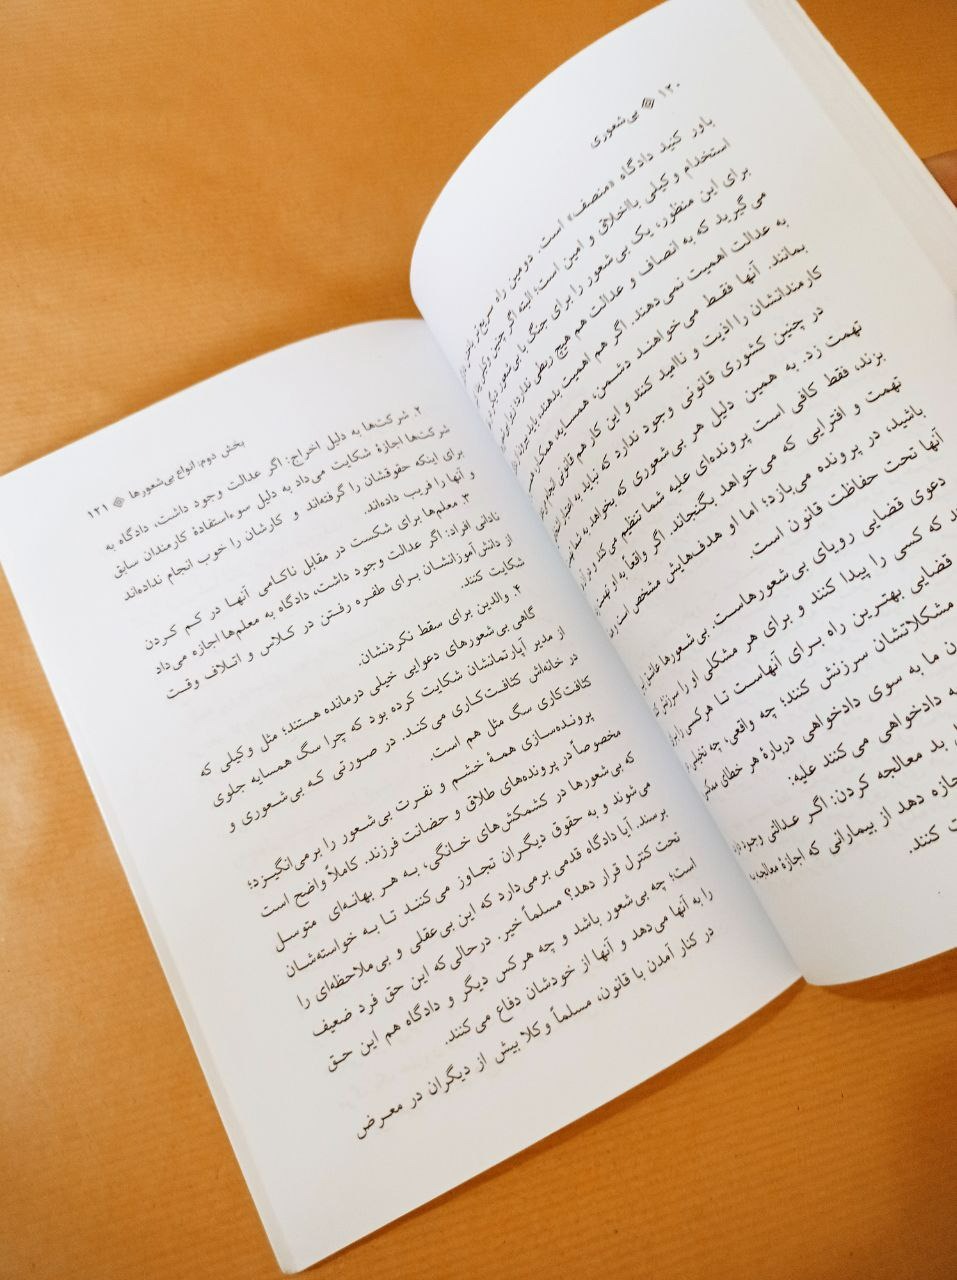 ۱۲۰ بی‌شعوری
باور کنید دادگاه «منصف» است. دومین راه سریع‌تر
استخدام وکیلی بااخلاق و امین است؛ البته اگر چنین وکیلی
برای این منظور، یک بی‌شعور را برای جنگ با بی‌شعور دیگر
می‌گیرید که به انصاف و عدالت هم هیچ ربطی ندارد
به عدالت اهمیت نمی‌دهند. اگر هم اهمیت بدهند، باید
بمانند. آنها فقط می‌خواهند دشمن، همسایه، همکار
کارمندانشان را اذیت و ناامید کنند و این کار هم قانونی انجام
در چنین کشوری قانونی وجود ندارد که نباید به
تهمت زد. به همین دلیل هر بی‌شعوری که بخواهد به شما
بزند، فقط کافی است پرونده‌ای علیه شما تنظیم می‌کند و در آن
تهمت و افترایی که می‌خواهد بگنجاند. اگر واقعاً به او تهمت
باشید، در پرونده می‌بازد؛ اما او هدف‌هایش مشخص است و
آنها تحت حفاظت قانون است.
دعوی قضایی رویای بی‌شعورهاست. بی‌شعورها عاشق
که کسی را پیدا کنند و برای هر مشکلی او را سرزنش
قضایی بهترین راه برای آنهاست تا هرکسی را
مشکلاتشان سرزنش کنند؛ چه واقعی، چه تخیلی
ما به سوی دادخواهی دربارهٔ هر خطای
دادخواهی می‌کنند علیه:
بد معالجه کردن: اگر عدالتی وجود
اجازه دهد از بیمارانی که اجازهٔ معالجه
کنند.
بخش دوم: انواع بی‌شعورها ۱۲۱
۲. شرکت‌ها به دلیل اخراج: اگر عدالت وجود داشت، دادگاه به
شرکت‌ها اجازهٔ شکایت می‌داد به دلیل سوءاستفادهٔ کارمندان سابق
برای اینکه حقوقشان را گرفته‌اند و کارشان را خوب انجام نداده‌اند
و آنها را فریب داده‌اند.
۳. معلم‌ها برای شکست در مقابل ناکامی آنها در کم کردن
نادانی افراد: اگر عدالت وجود داشت، دادگاه به معلم‌ها اجازه می‌داد
از دانش‌آموزانشان برای طفره رفتن در کلاس و اتلاف وقت
شکایت کنند.
۴. والدین برای سقط نکردنشان.
گاهی بی‌شعورهای دعوایی خیلی درمانده هستند؛ مثل وکیلی که
از مدیر آپارتمانشان شکایت کرده بود که چرا سگ همسایه جلوی
در خانه‌اش کثافت‌کاری می‌کند. در صورتی که بی‌شعوری و
کثافت‌کاری سگ مثل هم است.
پرونده‌سازی همهٔ خشم و نفرت بی‌شعور را برمی‌انگیزد؛
مخصوصاً در پرونده‌های طلاق و حضانت فرزند. کاملاً واضح است
که بی‌شعورها در کشمکش‌های خانگی، به هر بهانه‌ای متوسل
می‌شوند و به حقوق دیگران تجاوز می‌کنند تا به خواسته‌شان
برسند. آیا دادگاه قدمی برمی‌دارد که این بی‌عقلی و بی‌ملاحظه‌ای را
تحت کنترل قرار دهد؟ مسلماً خیر. درحالی‌که این حق فرد ضعیف
است؛ چه بی‌شعور باشد و چه هرکس دیگر و دادگاه هم این حق
را به آنها می‌دهد و آنها از خودشان دفاع می‌کنند.
در کنار آمدن با قانون، مسلماً وکلا بیش از دیگران در معرض